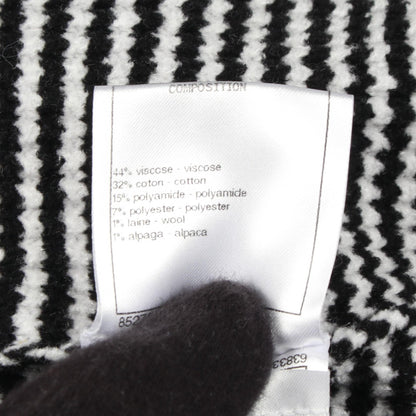 COMPOSITION
44% viscose - viscose
32% coton - cotton
15% polyamide - polyamide
7% polyester - polyester
1% laine - wool
1% alpaga - alpaca